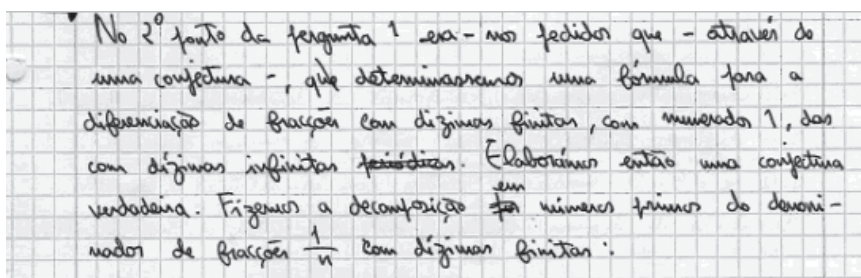 No 2º ponto da pergunta 1 era-nos pedidos que - através de
uma conjectura -, que determinassemos uma fórmula para a
diferenciação de fracções com dízimas finitas, com numerador 1, das
com dízimas infinitas periódicas. Elaborámos então uma conjectura
verdadeira. Fizemos a decomposição em números primos do denomi-
nador de fracções 1/n com dízimas finitas: